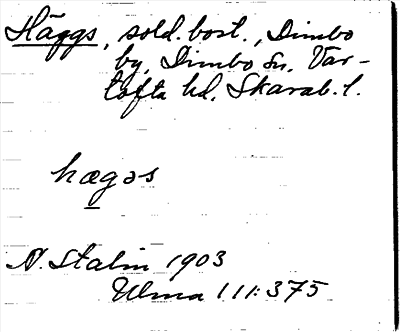 Häggs, sold. bost., Dimbo
by, Dimbo sn. Var-
tofta hd. Skarab. l.
hægəs
N. Stalin 1903
Ulma 111:375